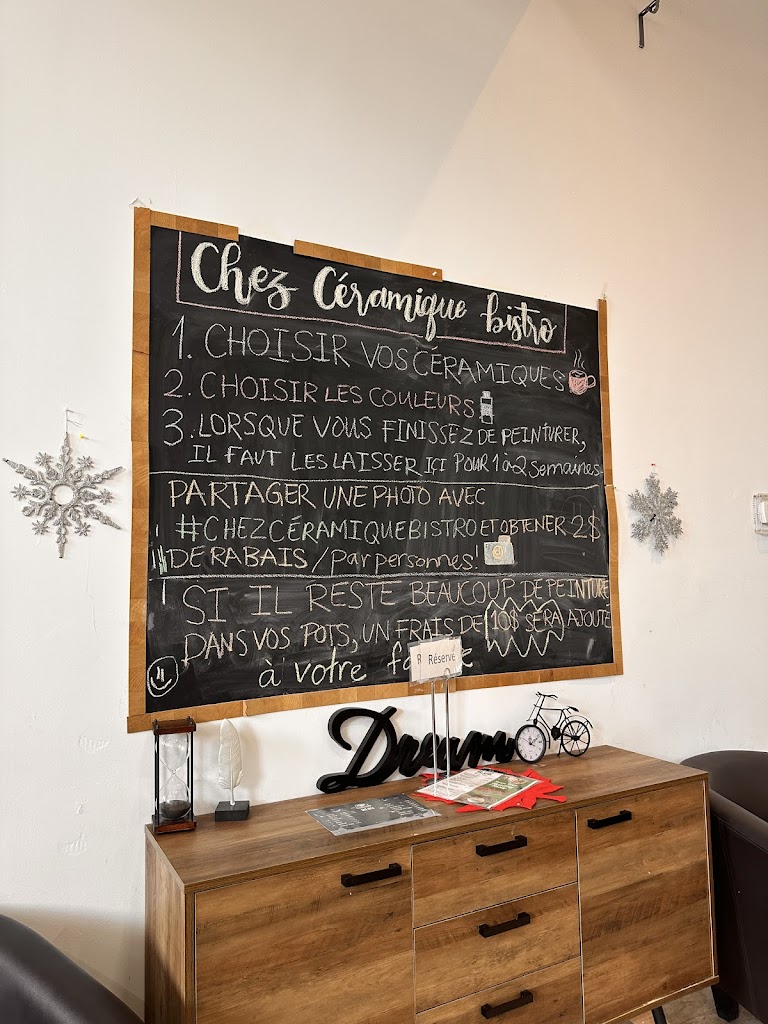 Chez Céramique bistro
1. CHOISIR VOS CÉRAMIQUES
2. CHOISIR LES COULEURS
3. LORSQUE VOUS FINISSEZ DE PEINTURER,
IL FAUT LES LAISSER IÇI POUR 1 à 2 semaines
PARTAGER UNE PHOTO AVEC
#CHEZCÉRAMIQUEBISTRO ET OBTENER 2$
DE RABAIS / par personnes!
SI IL RESTE BEAUCOUP DE PEINTURE
DANS VOS POTS, UN FRAIS DE 10$ SERA AJOUTÉ
à votre
Réservé
Dream